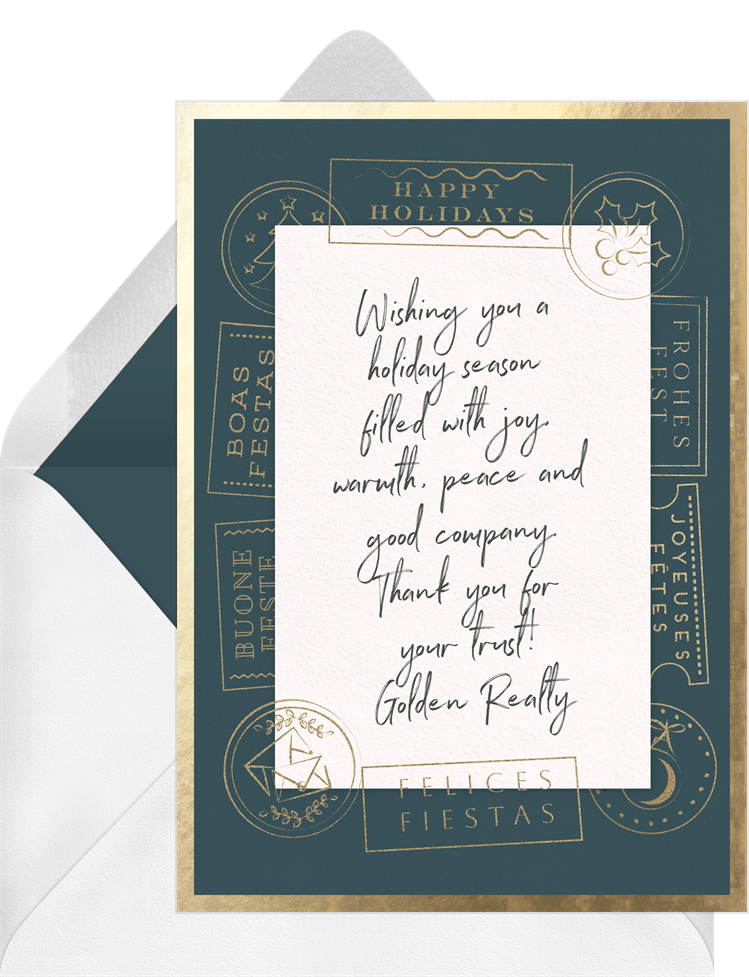 HAPPY
HOLIDAYS
BOAS
FESTAS
FROHES
FEST
Wishing you a
holiday season
filled with joy,
warmth, peace and
good company.
Thank you for
your trust!
Golden Realty
JOYEUSES
FÊTES
BUONE
FESTE
FELICES
FIESTAS